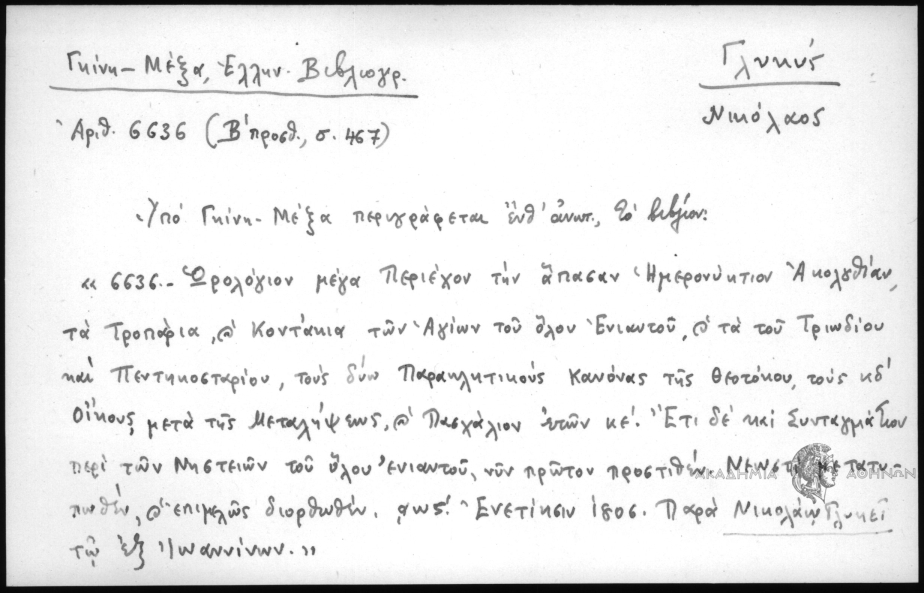 Γκίνη - Μέξα, Ἑλλην. Βιβλιογρ.
Γλυκύς
Νικόλαος
Ἀριθ. 6636 (Β΄ προσθ., σ. 467)
Ὑπό Γκίνη - Μέξα περιγράφεται ἔνθ' ἀνωτ., τό βιβλίον:
« 6636.- Ὡρολόγιον μέγα Περιέχον τὴν ἅπασαν Ἡμερονύκτιον Ἀκολουθίαν,
τὰ Τροπάρια, ϗ Κοντάκια τῶν Ἁγίων τοῦ ὅλου Ἐνιαυτοῦ, ϗ τὰ τοῦ Τριωδίου
καί Πεντηκοσταρίου, τοὺς δύω Παρακλητικούς Κανόνας τῆς Θεοτόκου, τούς κδ'
Οἴκους, μετὰ τῆς Μεταλήψεως, ϗ Πασχάλιον ἐτῶν κέ. Ἔτι δέ καί Συνταγμάτιον
περί τῶν Νηστειῶν τοῦ ὅλου ἐνιαυτοῦ, νῦν πρῶτον προστιθέν. Νεωστί μετατυ-
πωθέν, ϗ ἐπιμελῶς διορθωθέν. ͵αωέ. Ἐνετίησιν 1805. Παρά Νικολάῳ Γλυκεῖ
τῷ ἐξ Ἰωαννίνων. »
ΑΚΑΔΗΜΙΑ ΑΘΗΝΩΝ